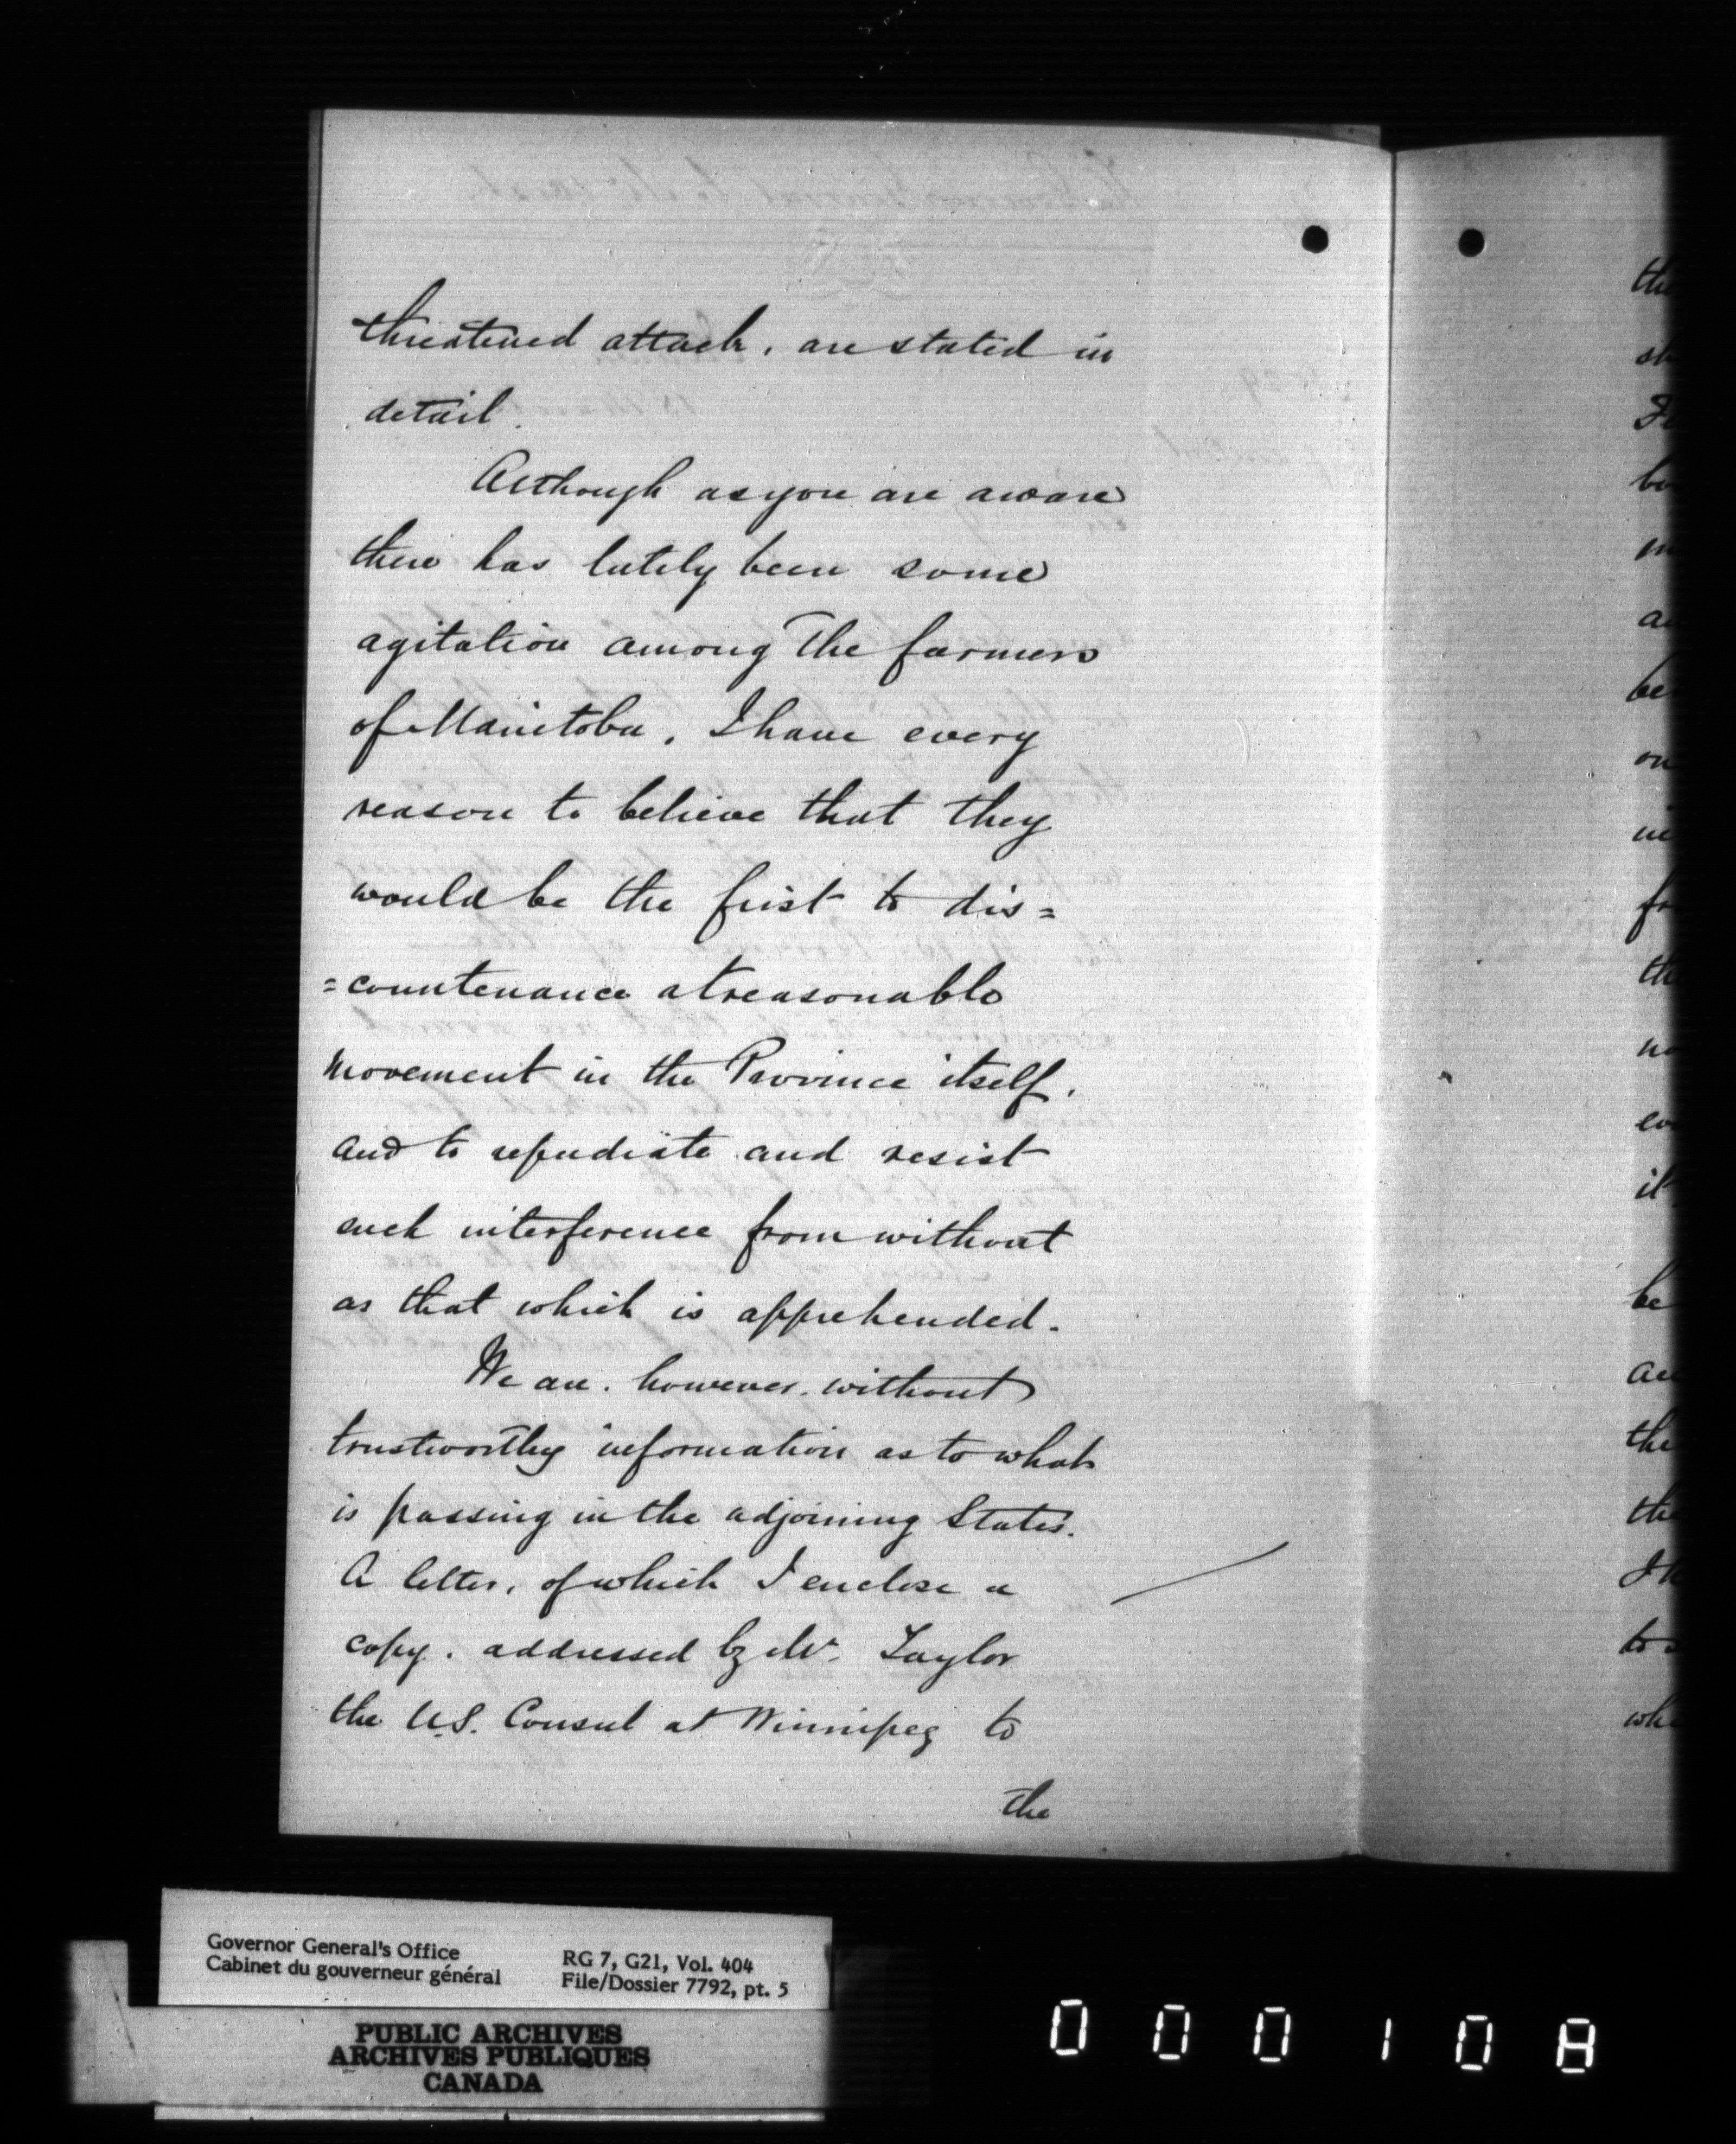 threatened attack, are stated in
detail.
Although as you are aware
there has lately been some
agitation among the farmers
of Manitoba, I have every
reason to believe that they
would be the first to dis=
=countenance a treasonable
movement in the Province itself,
and to repudiate and resist
such interference from without
as that which is apprehended.
We are, however, without
trustworthy information as to what
is passing in the adjoining States.
A letter, of which I enclose a
copy, addressed by Mr. Taylor
the U.S. Consul at Winnipeg to
the
Governor General's Office
Cabinet du gouverneur général
RG 7, G21, Vol. 404
File/Dossier 7792, pt. 5
PUBLIC ARCHIVES
ARCHIVES PUBLIQUES
CANADA
000108